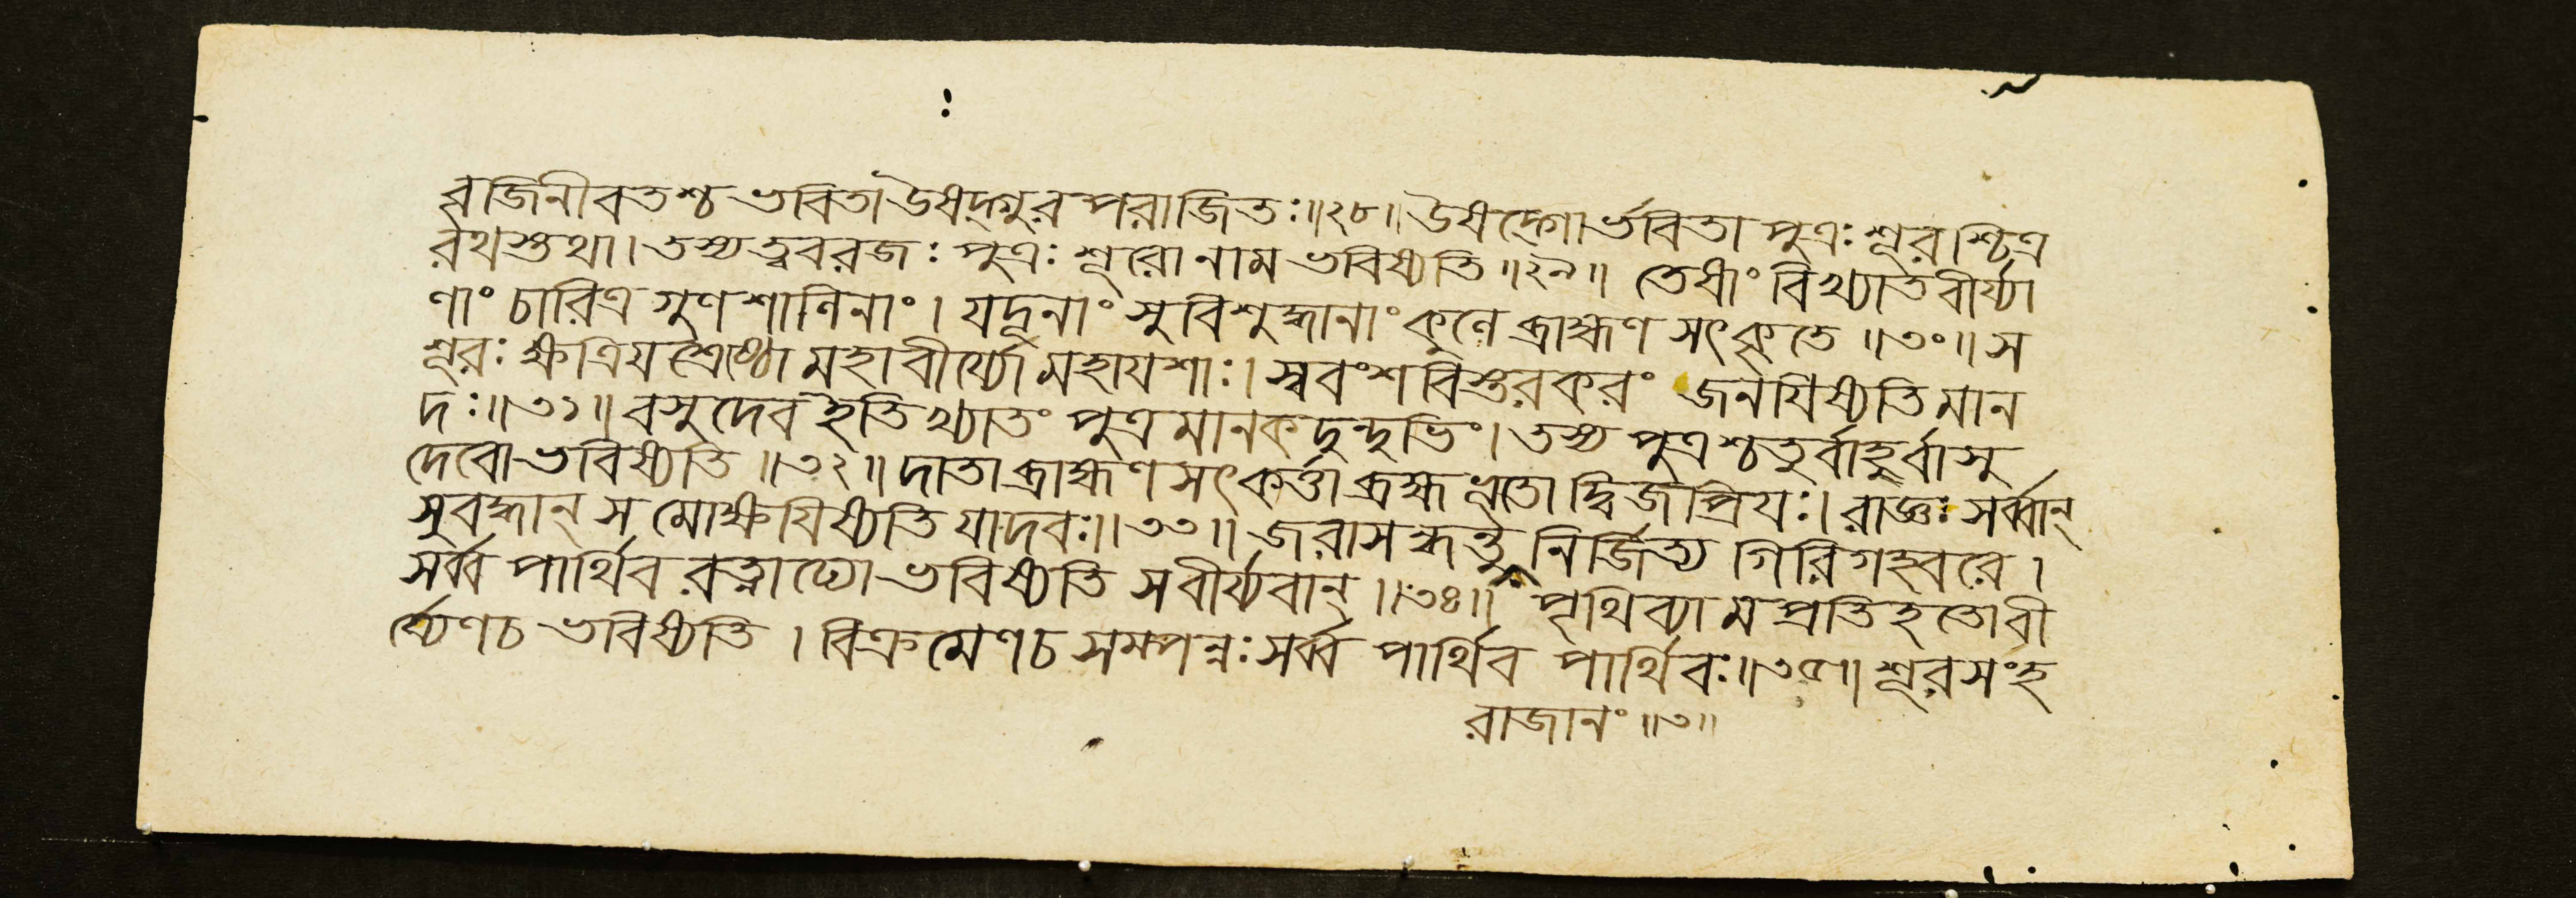 বৃজিনীবতশ্চ ভবিতা উষদ্গুরপরাজিতঃ॥২৮॥ উষদ্গোর্ভবিতা পুত্রঃ শূরশ্চিত্র
রথস্তথা। তস্য ত্ববরজঃ পুত্রঃ শূরো নাম ভবিষ্যতি॥২৯॥ তেষাং বিখ্যাতবীর্য্যা
ণাং চারিত্রগুণশালিনাং। যদূনাং সুবিশুদ্ধানাং কুলে ব্রাহ্মণসৎকৃতে॥৩০॥ স
শূরঃ ক্ষত্রিয়শ্রেষ্ঠো মহাবীর্য্যো মহাযশাঃ। স্ববংশবিস্তরকরং জনয়িষ্যতি মান
দঃ॥৩১॥ বসুদেব ইতি খ্যাতং পুত্রমানকদুন্দুভিং। তস্য পুত্রশ্চতুর্বাহুর্বাসু
দেবো ভবিষ্যতি॥৩২॥ দাতা ব্রাহ্মণসৎকর্ত্তা ব্রহ্মভূতো দ্বিজপ্রিয়ঃ। রাজ্ঞঃ সর্ব্বান্
সুবদ্ধান্ স মোক্ষয়িষ্যতি যাদবঃ॥৩৩॥ জরাসন্ধন্তু নির্জিত্য গিরিগহ্বরে।
সর্ব্বপার্থিবরত্নাঢ্যো ভবিষ্যতি সবীর্য্যবান্॥৩৪॥ পৃথিব্যামপ্রতিহতো বী
র্য্যেণ চ ভবিষ্যতি। বিক্রমেণ চ সম্পন্নঃ সর্ব্বপার্থিবপার্থিবঃ॥৩৫॥ শূরসংহ
রাজানং॥৩॥